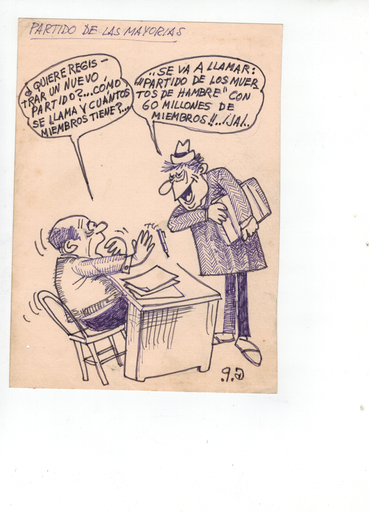 PARTIDO DE LAS MAYORIAS
¿QUIERE REGIS-
TRAR UN NUEVO
PARTIDO?...COMO
SE LLAMA Y CUÁNTOS
MIEMBROS TIENE?...
..SE VA A LLAMAR:
"PARTIDO DE LOS MUER
TOS DE HAMBRE" CON
60 MILLONES DE
MIEMBROS!!...¡JA!..